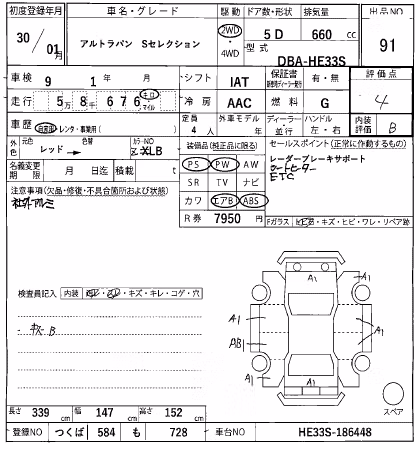 初度登録年月 車名・グレード 駆動 ドア数・形状 排気量 出品NO
30/01月 アルトラパン Sセレクション 2WD・4WD 5D 660cc 91
型式 DBA-HE33S
車検 9 1年 月 日 シフト IAT 保証書 有・無 評価点
走行 5万8千676 キロ・マイル 冷房 AAC 燃料 G 4
車歴 自家用・レンタ・事業用( ) 定員 4人 外車モデル 年 ディーラー・並行 ハンドル 左・右 内装評価 B
外色 元色 レッド → 色替 カラーNO ZXLB 装備品(純正品に限る) セールスポイント(正常に作動するもの)
名義変更期限 月 日迄 積載 t PS PW AW レーダーブレーキサポート
シートヒーター
ETC
注意事項(欠品・修復・不具合箇所および状態) SR TV ナビ
社外アルミ カワ エアB ABS
R券 7950円 Fガラス
キズ・ヒビ・ワレ・リペア跡
A1 A1
検査員記入 内装 ・キズ・キレ・コゲ・穴
A1 A1
キズB
AB1
A1 A1
スペア
長さ 339cm 幅 147cm 高さ 152cm
登録NO つくば 584 も 728 車台NO HE33S-186448